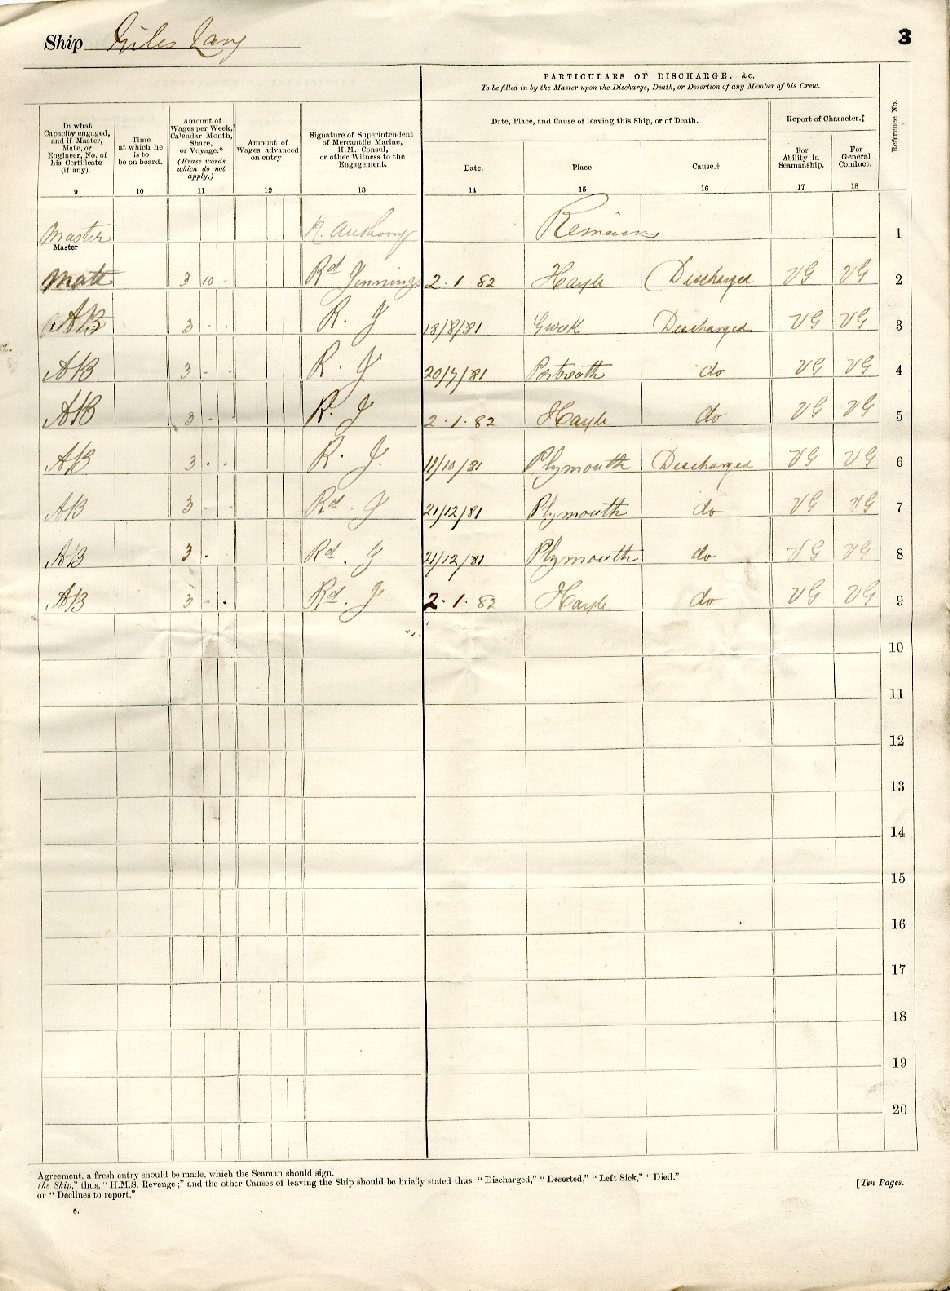 Ship Giles Lang
3
PARTICULARS OF DISCHARGE, &c.
To be filled in by the Master upon the Discharge, Death, or Desertion of any Member of his Crew.
In what Capacity engaged, and if Master, Mate, or Engineer, No. of his Certificate (if any).
Time at which he is to be on board.
Amount of Wages per Week, Calendar Month, Share, or Voyage.* (Erase words which do not apply.)
Amount of Wages advanced on entry
Signature of Superintendent of Mercantile Marine, H.M. Consul, or other Witness to the Engagement.
Date, Place, and Cause of leaving this Ship, or of Death.
Report of Character.‡
Reference No.
Date.
Place
Cause.†
For Ability in Seamanship.
For General Conduct.
9 10 11 12 13 14 15 16 17 18
Master R. Anthony Remains 1
Master
Mate 3 10 - Rd Jennings 2.1.82 Hayle Discharged VG VG 2
AB 3 - - R. J 18/8/81 Gweek Discharged VG VG 3
AB 3 - - R. J 20/7/81 Portreath do VG VG 4
AB 3 - - R. J 2.1.82 Hayle do VG VG 5
AB 3 - - R. J 11/10/81 Plymouth Discharged VG VG 6
AB 3 - - Rd. J 21/12/81 Plymouth do VG VG 7
AB 3 - Rd. J 21/12/81 Plymouth do VG VG 8
AB 3 - - Rd. J 2.1.82 Hayle do VG VG 9
10
11
12
13
14
15
16
17
18
19
20
Agreement, a fresh entry should be made, which the Seaman should sign.
the Ship," thus, "H.M.S. Revenge;" and the other Causes of leaving the Ship should be briefly stated thus "Discharged," "Deserted," "Left Sick," "Died."
or "Declines to report."
[Ten Pages.
c.